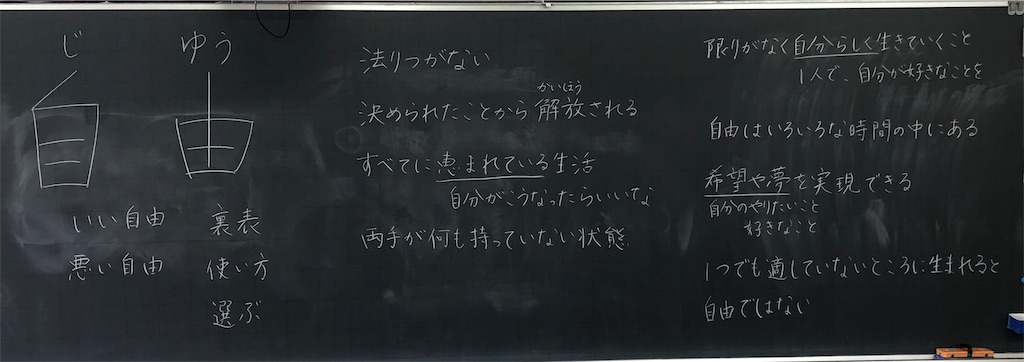 じ ゆう
自由
いい自由 裏表
悪い自由 使い方
選ぶ
法りつがない
かいほう
決められたことから解放される
すべてに恵まれている生活
自分がこうなったらいいな
両手が何も持っていない状態
限りがなく自分らしく生きていくこと
1人で、自分が好きなことを
自由はいろいろな時間の中にある
希望や夢を実現できる
自分のやりたいこと
好きなこと
1つでも適していないところに生まれると
自由ではない